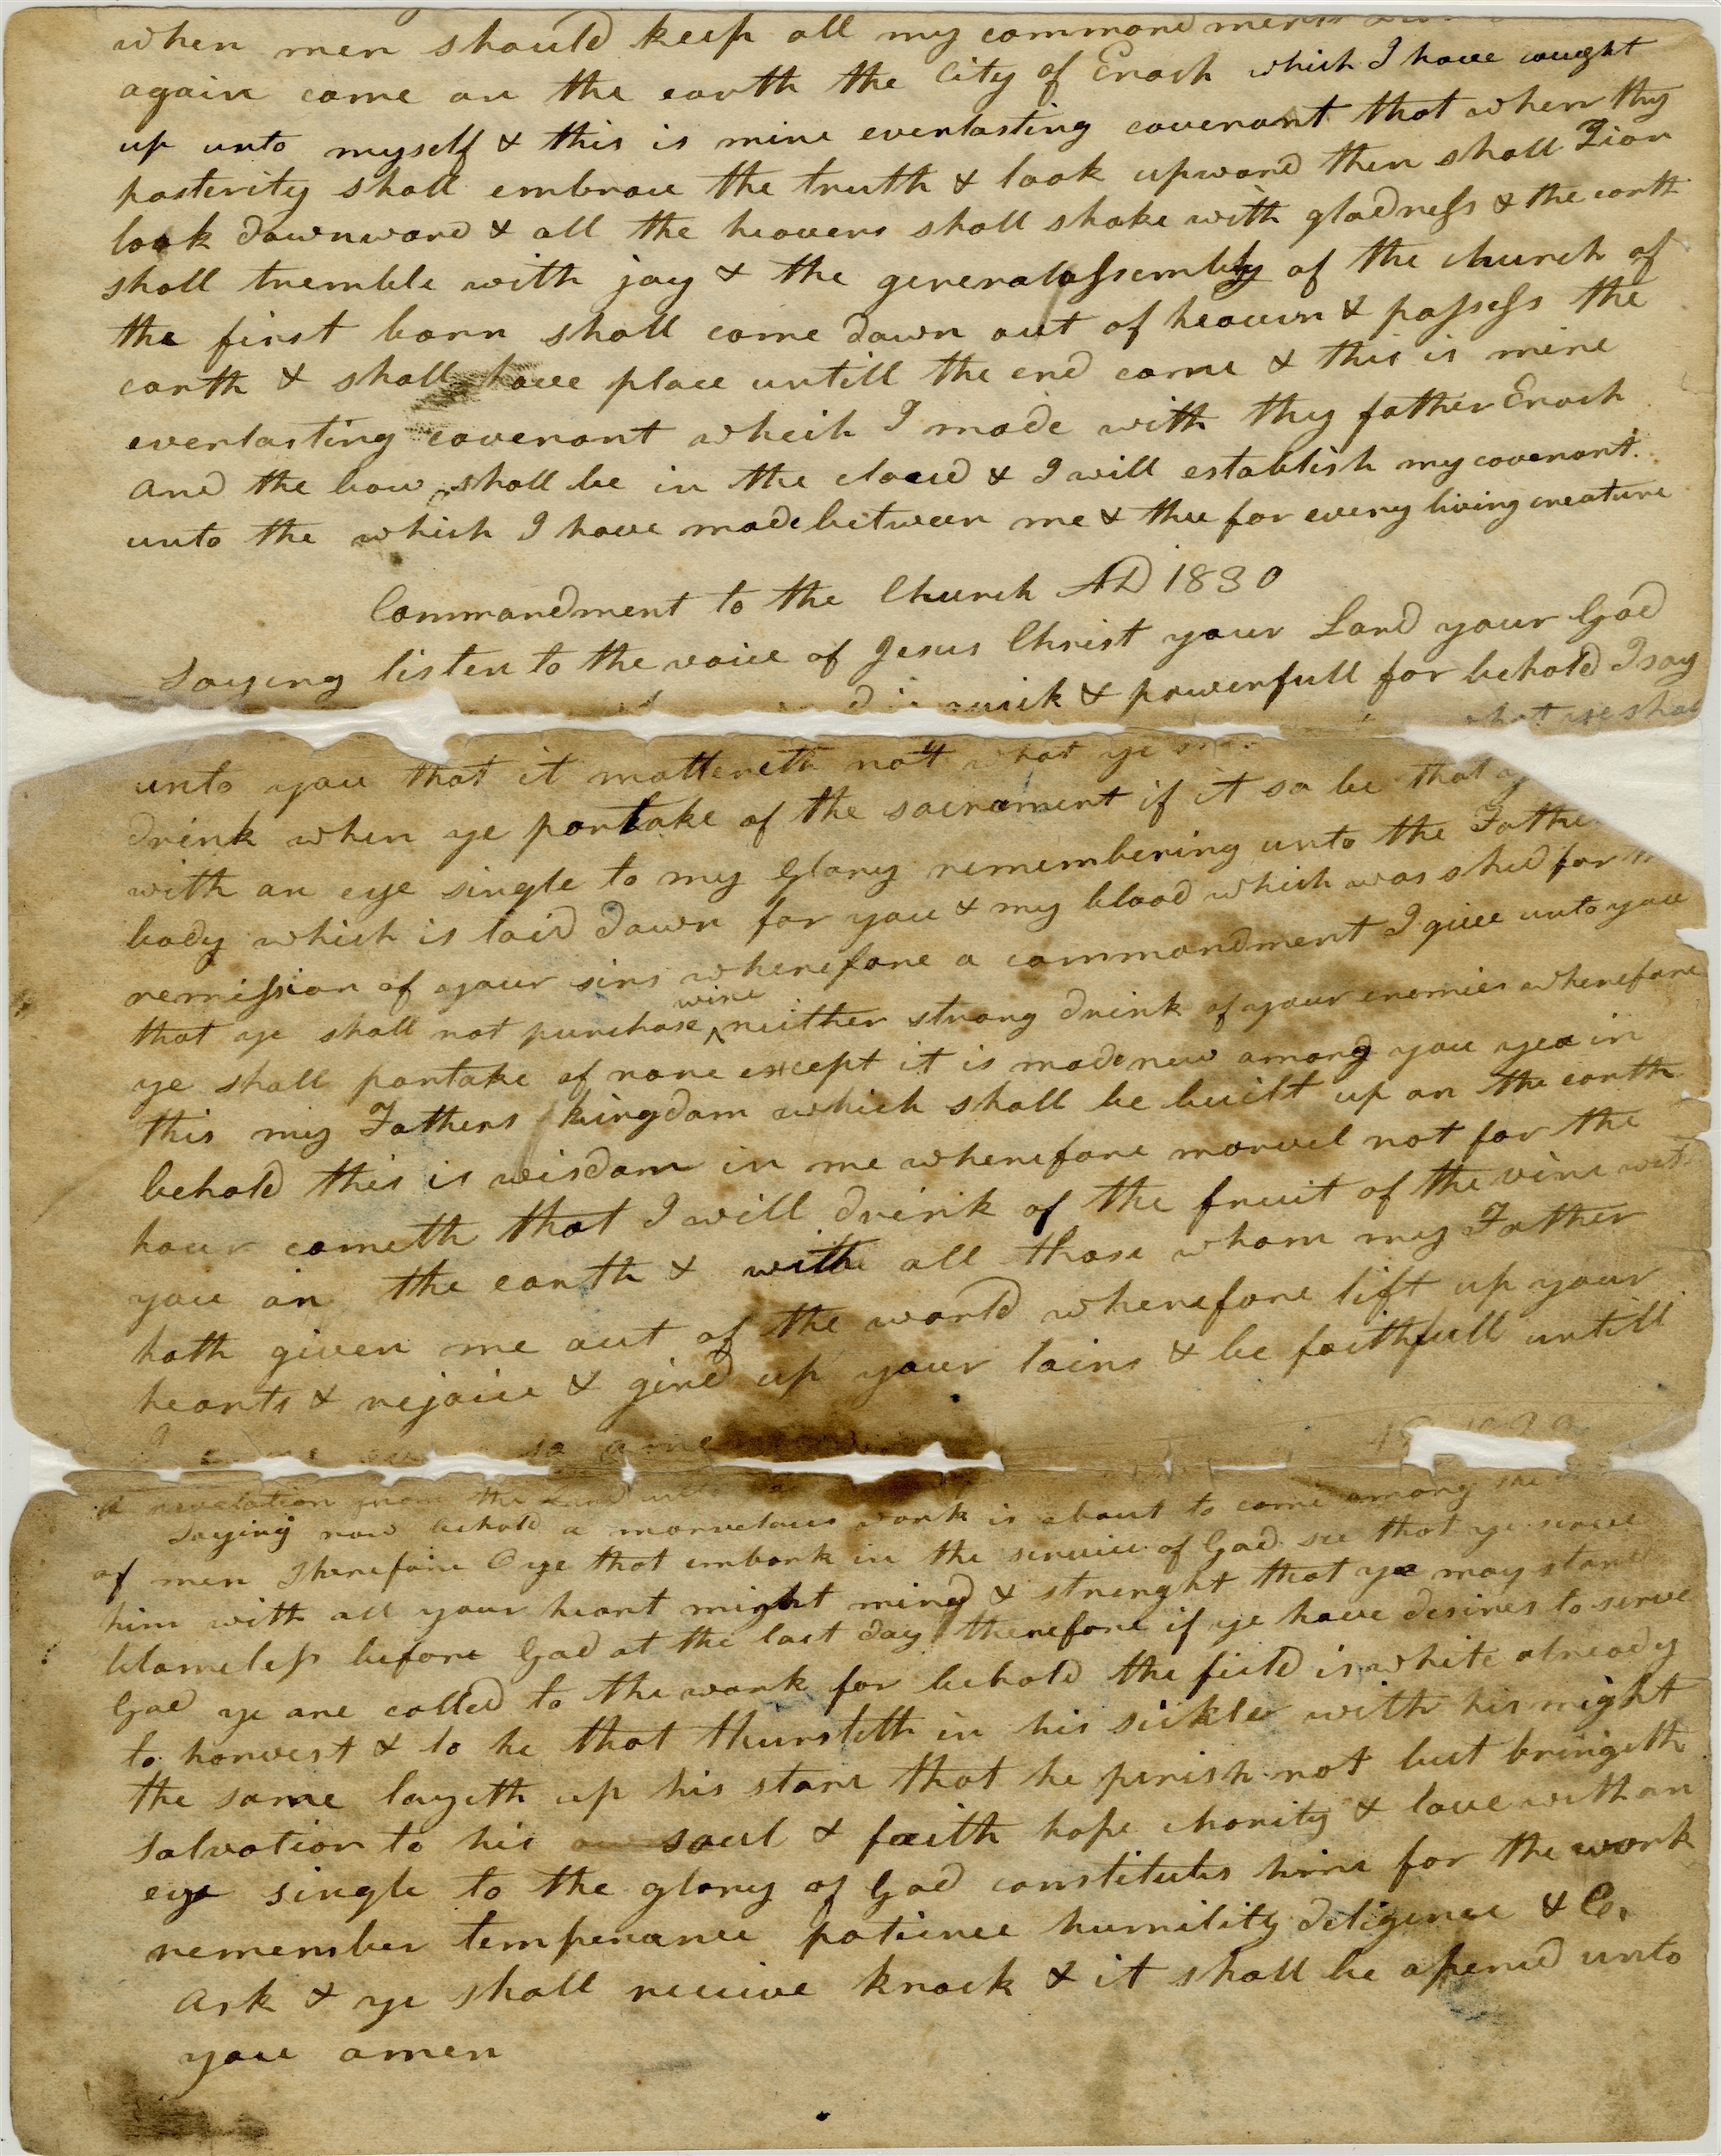 when men should keep all my commandments
again come on the earth the City of Enoch which I have caught
up unto myself & this is mine everlasting covenant that when thy
posterity shall embrace the truth & look upward then shall Zion
look downward & all the heavens shall shake with gladness & the earth
shall tremble with joy & the general assembly of the church of
the first born shall come down out of heaven & possess the
earth & shall have place untill the end come & this is mine
everlasting covenant wheich I made with thy father Enoch
and the bow shall be in the cloud & I will establish my covenant
unto the which I have made between me & thee for every living creature
Commandment to the Church AD 1830
Saying listen to the voice of Jesus Christ your Lord your God
quick & powerfull for behold I say
unto you that it mattereth not what ye shal
drink when ye partake of the sacrament if it so be that
with an eye single to my Glory remembering unto the Father
body which is laid down for you & my blood which was shed for
remission of your sins wherefore a commandment I give unto you
that ye shall not purchase ^wine neither strong drink of your enemies wherefore
ye shall partake of none except it is made new among you yea in
this my Fathers kingdom which shall be built up on the earth
behold this is wisdom in me wherefore marvel not for the
hour cometh that I will drink of the fruit of the vine with
you on the earth & with all those whom my Father
hath given me out of the world wherefore lift up your
hearts & rejoice & gird up your loins & be faithfull untill
I so amen
A revelation from the Lord unto
Saying now behold a marvelous work is about to come among the
of men Therefore O ye that embark in the service of God see that ye serve
him with all your heart might mind & strenght that ye may stand
blameless before God at the last day therefore if ye have desires to serve
God ye are called to the work for behold the field is white already
to harvest & lo he that thursteth in his sickle with his might
the same layeth up his store that he perish not but bringeth
salvation to his soul & faith hope charity & love with an
eye single to the glory of God constitutes him for the work
remember temperance patience humility diligence & C.
Ask & ye shall receive knock & it shall be opened unto
you amen